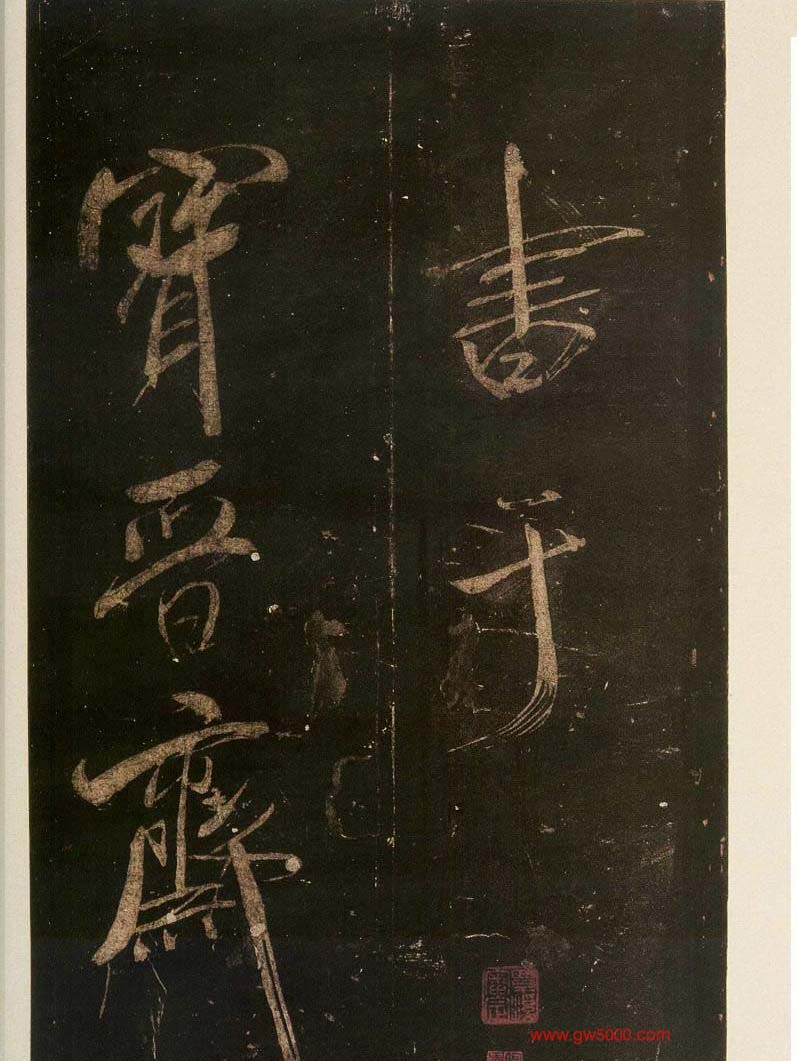 書于
寶晉齋
www.gw5000.com